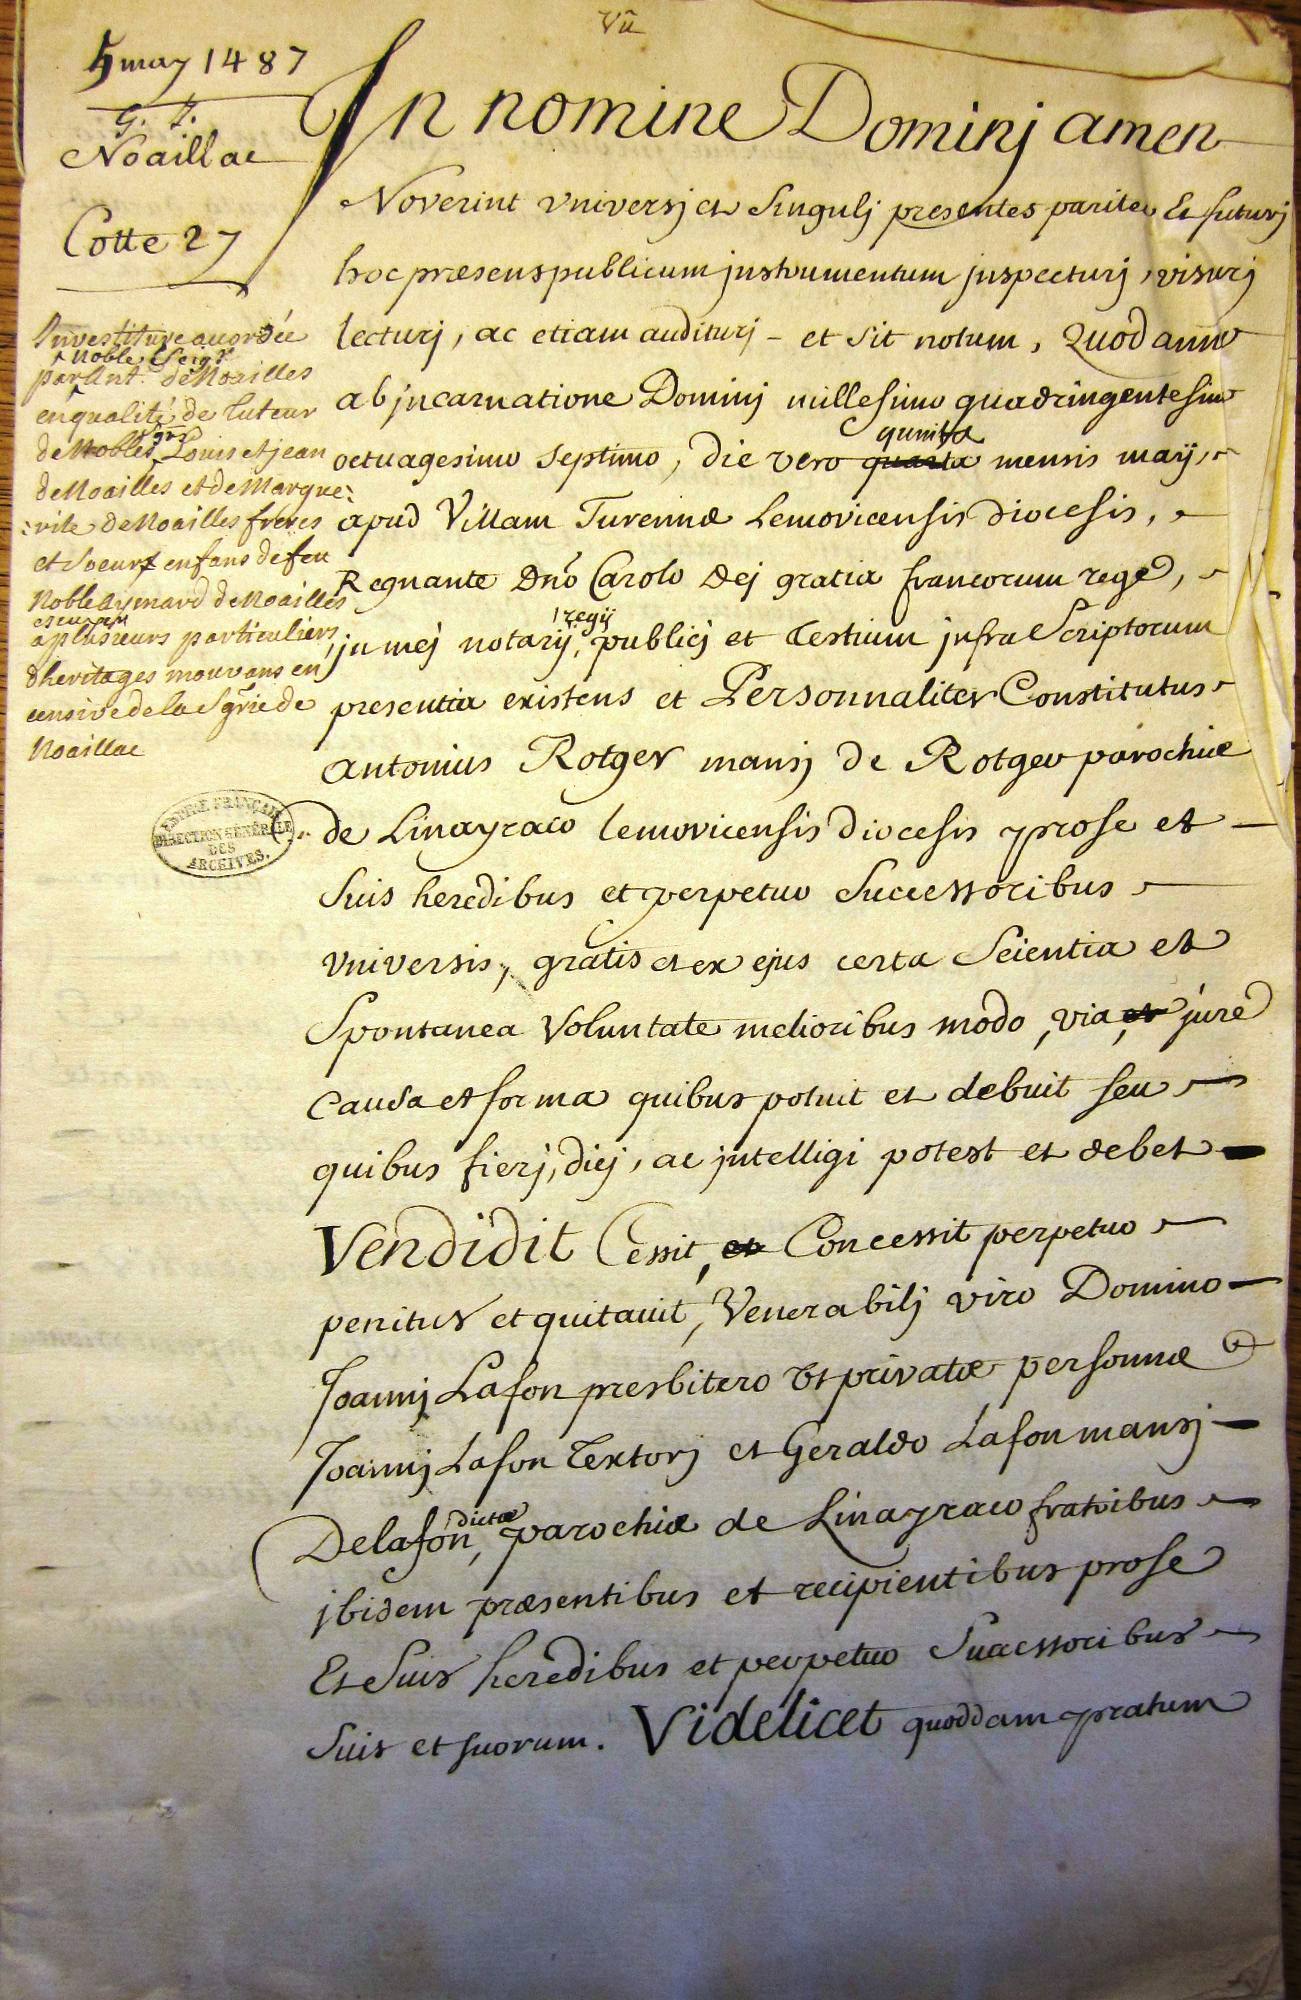 Vû
5 may 1487
G. 7.
Noaillac
Cotte 27
Investiture accordée
noble Seigr
par Ant. de Noailles
en qualité de tuteur
sgrs
de Nobles Louis et jean
de Noailles et de Margue:
:rite de Noailles freres
et Soeurs enfans de feu
Noble Aymard de Noailles
escuyer
a plusieurs particuliers
d'heritages mouvans en
censive de la Sgrie de
Noaillac
EMPIRE FRANÇAIS
DIRECTION GÉNÉRALE
DES
ARCHIVES.
In nomine Dominj amen
Noverint Vniversj et Singulj presentes pariter Et futurj
hoc præsens publicum jnstrumentum jnspecturj, visurj
lecturj, ac etiam auditurj - et sit notum, Quod anno
ab jncarnatione Dominj millesimo quadringentesimo
quinta
octuagesimo septimo, die vero quarta mensis maij,
apud Villam Turennæ Lemovicensis diocesis,
Regnante Dno Carolo Dej gratia francorum rege,
regij
jn mej notarij, publicj et testium jnfra Scriptorum
presentia existens et Personnaliter Constitutus
Antonius Rotger mansj de Rotger parochiæ
de Linayraco lemovicensis diocesis pro se et
Suis heredibus et perpetuo Successoribus
Vniversis, gratis et ex ejus certa Scientia et
Spontanea Voluntate melioribus modo, via, et jure
Causa et forma quibus potuit et debuit seu
quibus fierj, dicj, ac jntelligi potest et debet
Vendidit Cessit, et Concessit perpetuo
penitus et quitavit, Venerabilj viro Domino
Joannj Lafon presbitero Ut privatæ personnæ et
Joannj Lafon Textorj et Geraldo Lafon mansj
dictæ
Delafon, parochiæ de Linayraco fratribus
jbidem præsentibus et recipientibus pro se
Et Suis heredibus et perpetuo Successoribus
Suis et suorum. Videlicet quoddam pratum